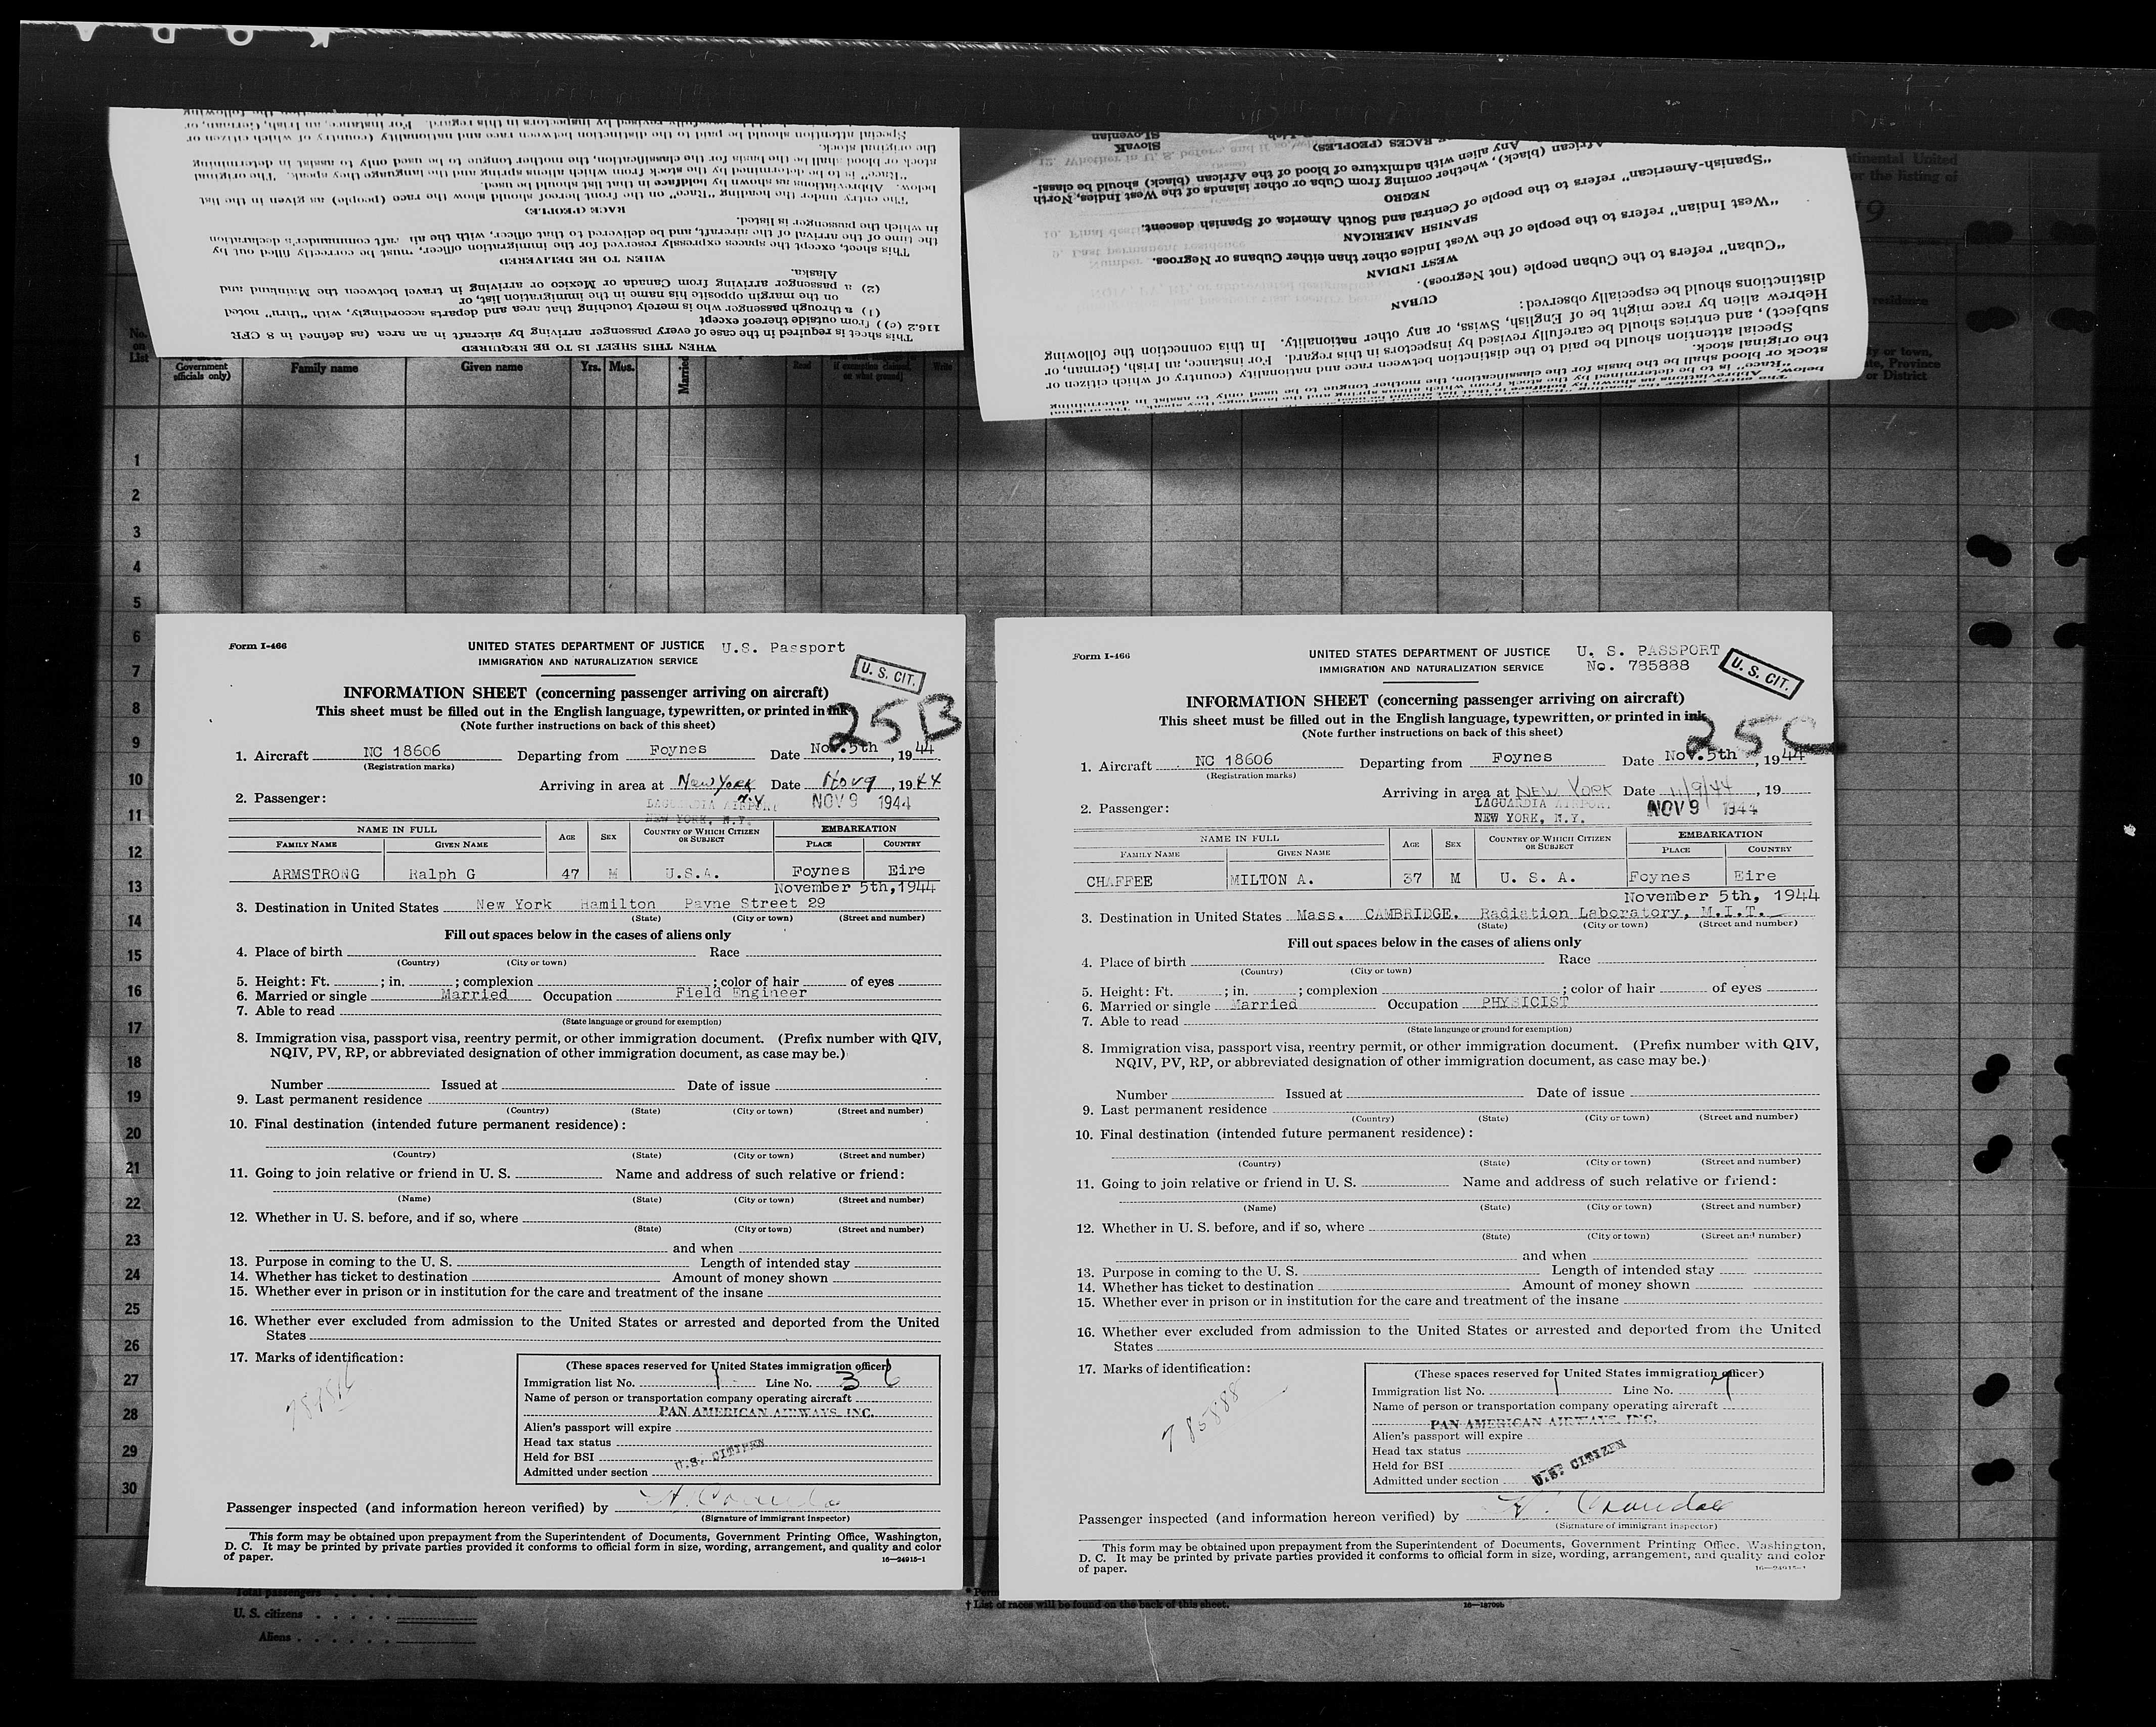 Form I-466
UNITED STATES DEPARTMENT OF JUSTICE U.S. Passport
IMMIGRATION AND NATURALIZATION SERVICE
U. S. CIT.
INFORMATION SHEET (concerning passenger arriving on aircraft)
This sheet must be filled out in the English language, typewritten, or printed in ink
(Note further instructions on back of this sheet)
25B
1. Aircraft NC 18606 Departing from Foynes Date Nov.5th, 1944
(Registration marks)
Arriving in area at New York N.Y Date Nov 9, 1944
LAGUARDIA AIRPORT NOV 9 1944
NEW YORK, N.Y.
2. Passenger:
NAME IN FULL AGE SEX COUNTRY OF WHICH CITIZEN OR SUBJECT EMBARKATION
FAMILY NAME GIVEN NAME PLACE COUNTRY
ARMSTRONG Ralph G 47 M U.S.A. Foynes Eire
November 5th,1944
3. Destination in United States New York Hamilton Payne Street 29
(State) (City or town) (Street and number)
Fill out spaces below in the cases of aliens only
4. Place of birth Race
(Country) (City or town)
5. Height: Ft. ; in. ; complexion ; color of hair of eyes
6. Married or single Married Occupation Field Engineer
7. Able to read
(State language or ground for exemption)
8. Immigration visa, passport visa, reentry permit, or other immigration document. (Prefix number with QIV,
NQIV, PV, RP, or abbreviated designation of other immigration document, as case may be.)
Number Issued at Date of issue
9. Last permanent residence
(Country) (State) (City or town) (Street and number)
10. Final destination (intended future permanent residence):
(Country) (State) (City or town) (Street and number)
11. Going to join relative or friend in U. S. Name and address of such relative or friend:
(Name) (State) (City or town) (Street and number)
12. Whether in U. S. before, and if so, where
(State) (City or town) (Street and number)
and when
13. Purpose in coming to the U. S. Length of intended stay
14. Whether has ticket to destination Amount of money shown
15. Whether ever in prison or in institution for the care and treatment of the insane
16. Whether ever excluded from admission to the United States or arrested and deported from the United
States
17. Marks of identification:
(These spaces reserved for United States immigration officer)
Immigration list No. 1 Line No. 36
Name of person or transportation company operating aircraft
PAN AMERICAN AIRWAYS INC.
Alien's passport will expire
Head tax status
Held for BSI
Admitted under section
U.S. CITIZEN
Passenger inspected (and information hereon verified) by
(Signature of immigrant inspector)
This form may be obtained upon prepayment from the Superintendent of Documents, Government Printing Office, Washington,
D. C. It may be printed by private parties provided it conforms to official form in size, wording, arrangement, and quality and color
of paper.
16—24915-1
Form I-466
UNITED STATES DEPARTMENT OF JUSTICE U. S. PASSPORT
IMMIGRATION AND NATURALIZATION SERVICE No. 785888
U. S. CIT.
INFORMATION SHEET (concerning passenger arriving on aircraft)
This sheet must be filled out in the English language, typewritten, or printed in ink
(Note further instructions on back of this sheet)
25C
1. Aircraft NC 18606 Departing from Foynes Date Nov.5th, 1944
(Registration marks)
Arriving in area at NEW YORK Date 11/9/44, 19
LAGUARDIA AIRPORT NOV 9 1944
NEW YORK, N.Y.
2. Passenger:
NAME IN FULL AGE SEX COUNTRY OF WHICH CITIZEN OR SUBJECT EMBARKATION
FAMILY NAME GIVEN NAME PLACE COUNTRY
CHAFFEE MILTON A. 37 M U. S. A. Foynes Eire
November 5th, 1944
3. Destination in United States Mass. CAMBRIDGE. Radiation Laboratory, M.I.T.
(State) (City or town) (Street and number)
Fill out spaces below in the cases of aliens only
4. Place of birth Race
(Country) (City or town)
5. Height: Ft. ; in. ; complexion ; color of hair of eyes
6. Married or single Married Occupation PHYSICIST
7. Able to read
(State language or ground for exemption)
8. Immigration visa, passport visa, reentry permit, or other immigration document. (Prefix number with QIV,
NQIV, PV, RP, or abbreviated designation of other immigration document, as case may be.)
Number Issued at Date of issue
9. Last permanent residence
(Country) (State) (City or town) (Street and number)
10. Final destination (intended future permanent residence):
(Country) (State) (City or town) (Street and number)
11. Going to join relative or friend in U. S. Name and address of such relative or friend:
(Name) (State) (City or town) (Street and number)
12. Whether in U. S. before, and if so, where
(State) (City or town) (Street and number)
and when
13. Purpose in coming to the U. S. Length of intended stay
14. Whether has ticket to destination Amount of money shown
15. Whether ever in prison or in institution for the care and treatment of the insane
16. Whether ever excluded from admission to the United States or arrested and deported from the United
States
17. Marks of identification:
785888
(These spaces reserved for United States immigration officer)
Immigration list No. 1 Line No. 7
Name of person or transportation company operating aircraft
PAN AMERICAN AIRWAYS, INC.
Alien's passport will expire
Head tax status
Held for BSI
Admitted under section
U.S. CITIZEN
Passenger inspected (and information hereon verified) by
(Signature of immigrant inspector)
This form may be obtained upon prepayment from the Superintendent of Documents, Government Printing Office, Washington,
D. C. It may be printed by private parties provided it conforms to official form in size, wording, arrangement, and quality and color
of paper.
WHEN THIS SHEET IS TO BE REQUIRED
This sheet is required in the case of every passenger arriving by aircraft in an area (as defined in 8 CFR
116.2 (c)) from outside thereof except
(1) a through passenger who is merely touching that area and departs accordingly, with "thru" noted
on the margin opposite his name in the immigration list, or
(2) a passenger arriving from Canada or Mexico or arriving in travel between the Mainland and
Alaska.
WHEN TO BE DELIVERED
This sheet, except the spaces expressly reserved for the immigration officer, must be correctly filled out by
the time of the arrival of the aircraft, and be delivered to that officer, with the aircraft commander's declaration
in which the passenger is listed.
RACE (PEOPLE)
The entry under the heading "Race" on the front hereof should show the race (people) as given in the list
below. Abbreviations as shown by boldface in that list should be used.
"Race" is to be determined by the stock from which aliens spring and the language they speak. The original
stock or blood shall be the basis for the classification, the mother tongue to be used only to assist in determining
the original stock.
Special attention should be paid to the distinction between race and nationality (country of which citizen or
"Race" is to be determined by the stock from which aliens spring and the language they speak. The original
stock or blood shall be the basis for the classification, the mother tongue to be used only to assist in determining
the original stock.
Special attention should be paid to the distinction between race and nationality (country of which citizen or
subject), and entries should be carefully revised by inspectors in this regard. For instance, an Irish, German, or
Hebrew alien by race might be of English, Swiss, or any other nationality. In this connection the following
distinctions should be especially observed:
CUBAN
"Cuban" refers to the Cuban people (not Negroes).
WEST INDIAN
"West Indian" refers to the people of the West Indies other than either Cubans or Negroes.
SPANISH AMERICAN
"Spanish-American" refers to the people of Central and South America of Spanish descent.
NEGRO
African (black), whether coming from Cuba or other islands of the West Indies, North
Any alien with admixture of blood of the African (black) should be classi-
RACES (PEOPLES)
Slovak
Slovenian
No. on List
Government officials only)
Family name
Given name
Yrs. Mos.
Married
Read
Write
1
2
3
4
5
6
7
8
9
10
11
12
13
14
15
16
17
18
19
20
21
22
23
24
25
26
27
28
29
30
Total passengers
U. S. citizens
Aliens
† List of races will be found on the back of this sheet.
16—18709b